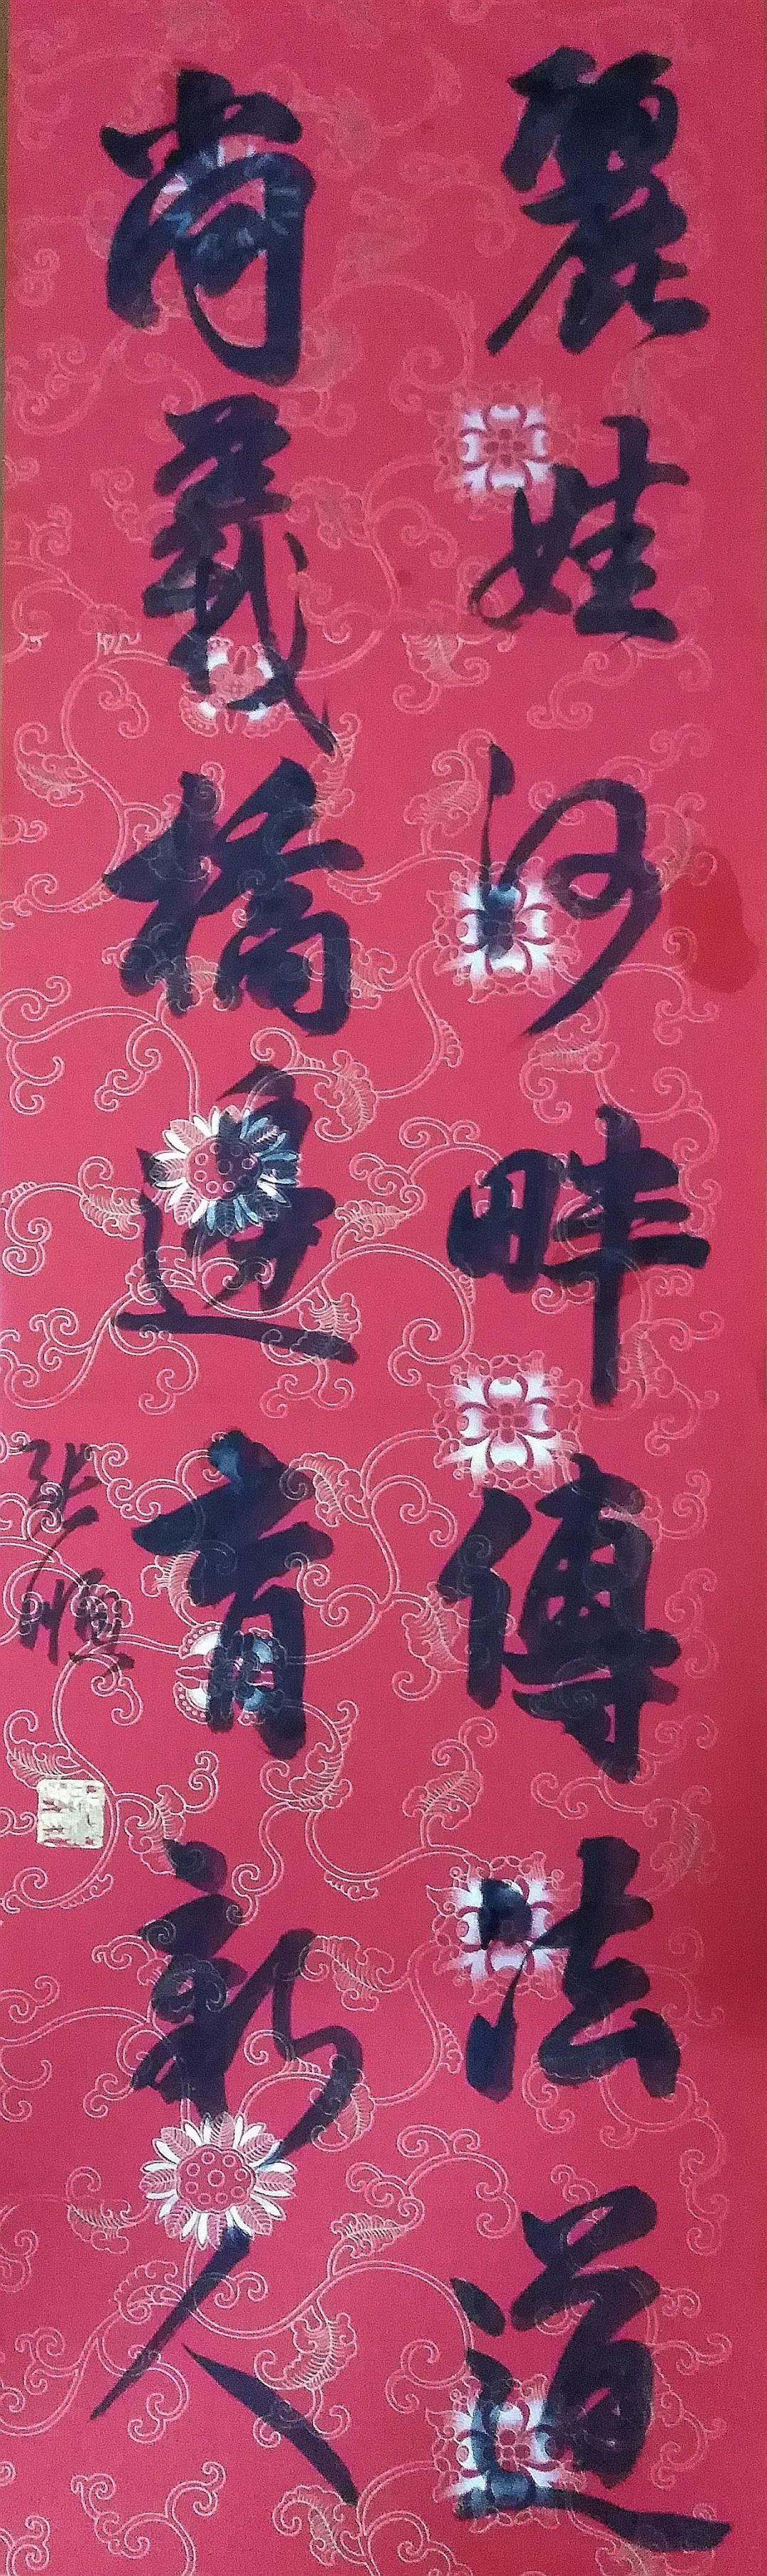 麗娃河畔傳法道
尚義橋邊育新人
張恒